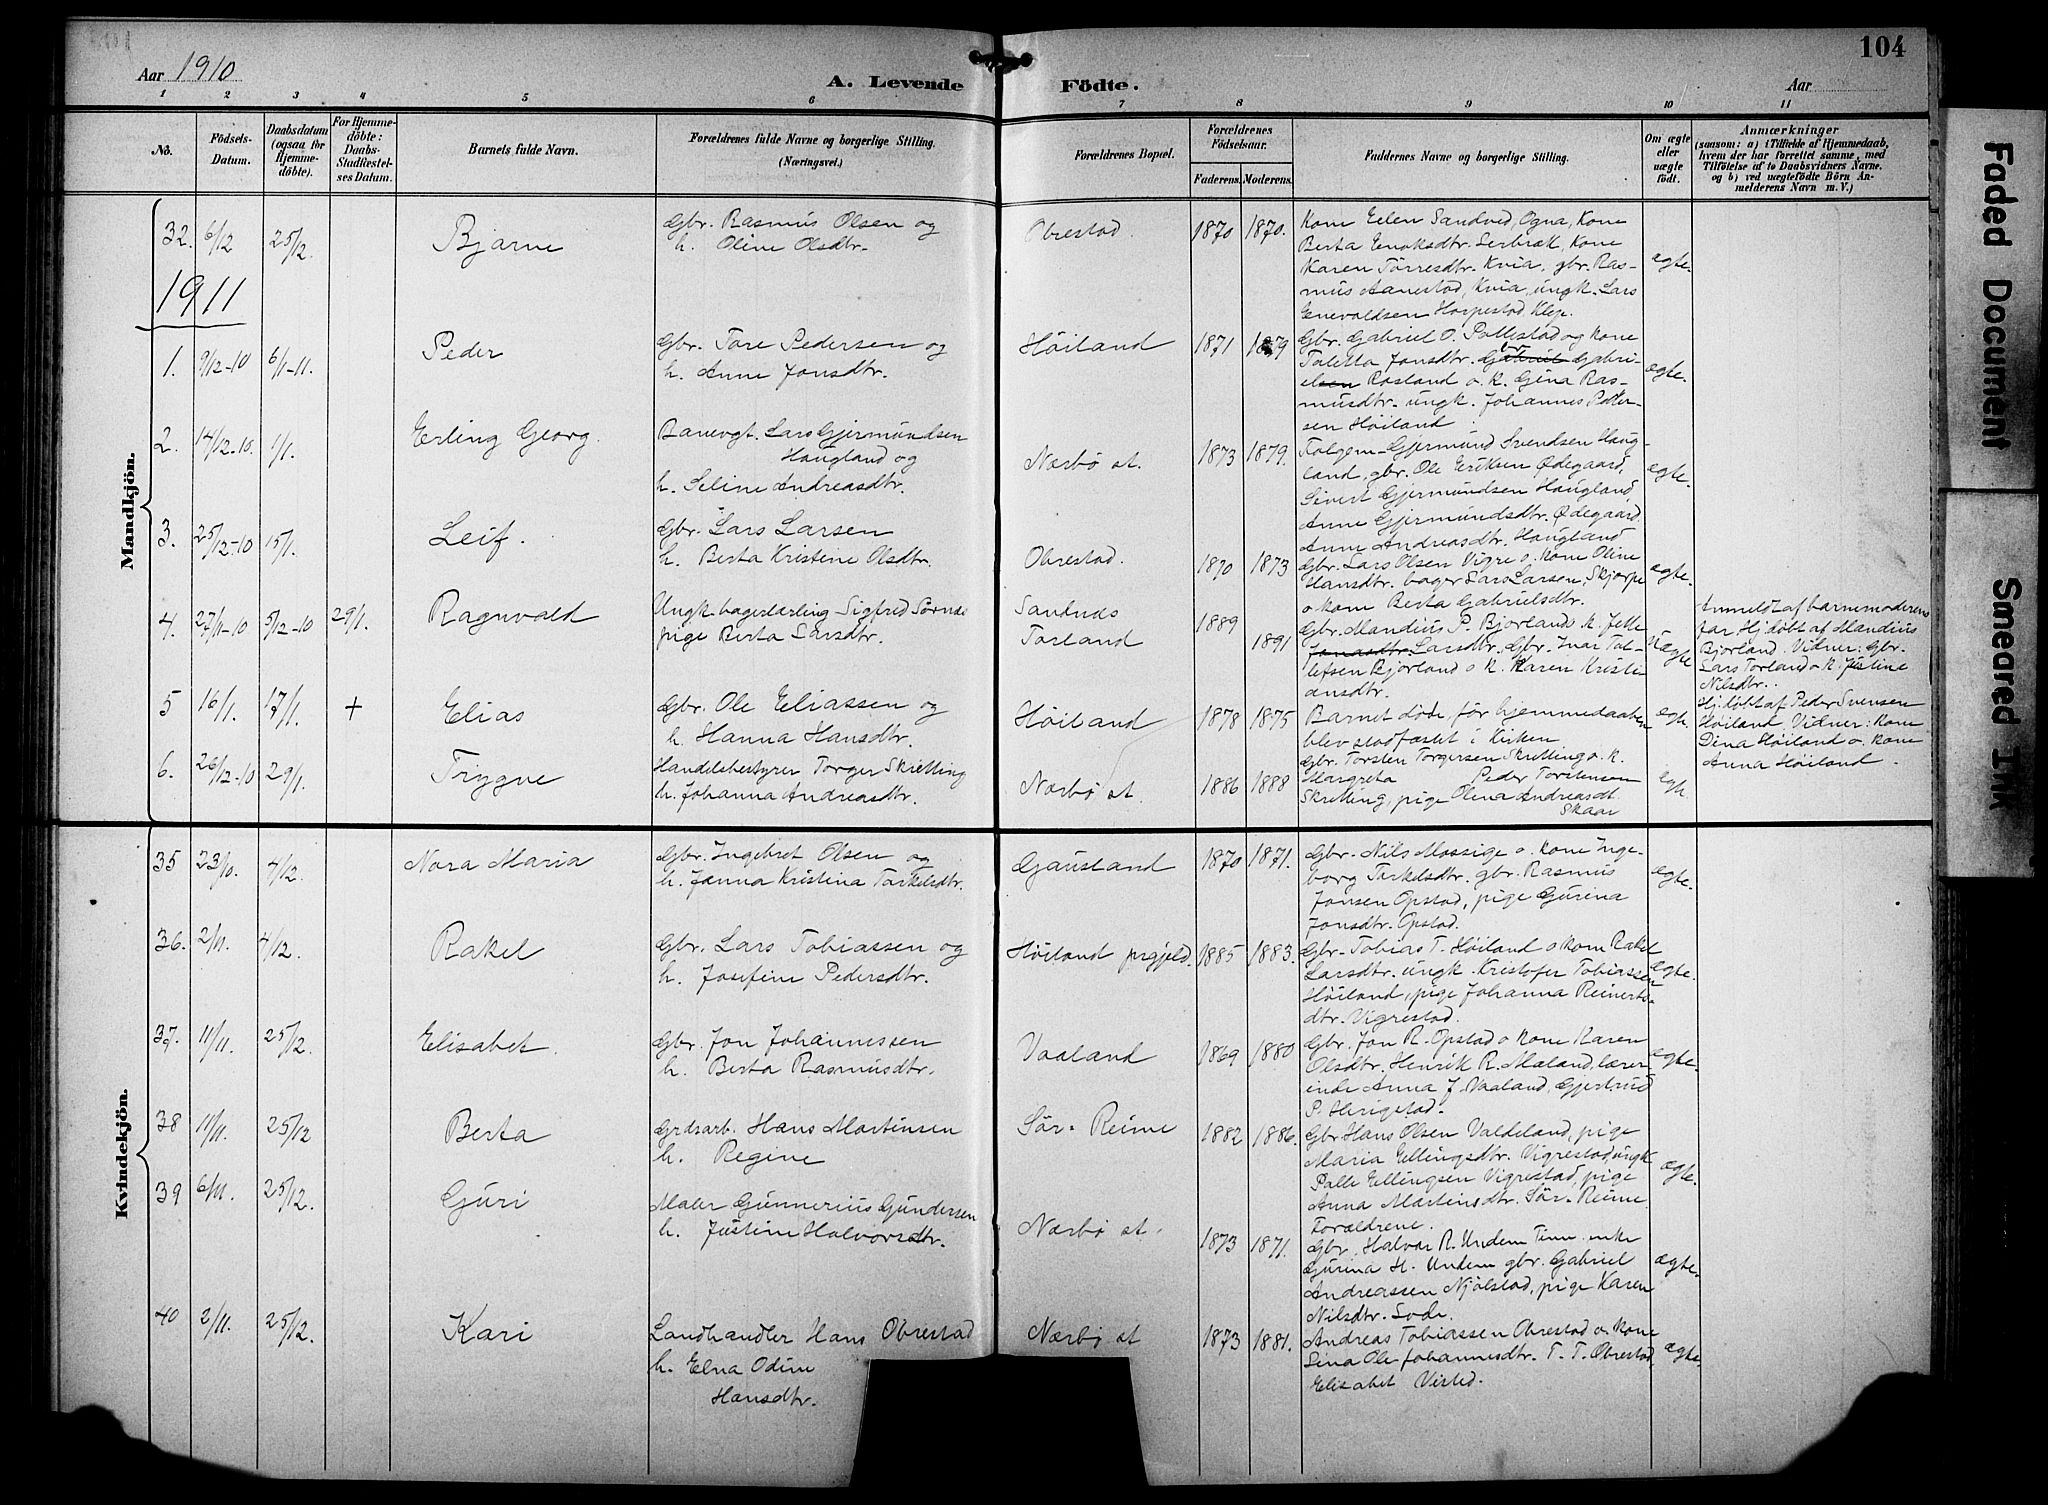 Aar 1910
A. Levende Födte.
Aar
104
1 2 3 4 5 6 7 8 9 10 11
No.
Födsels-
Datum.
Daabsdatum
(ogsaa for
Hjemme-
döbte).
For Hjemme-
döbte:
Daabs-
Stadfæstel-
ses Datum.
Barnets fulde Navn.
Forældrenes fulde Navne og borgerlige Stilling.
(Næringsvei.)
Forældrenes Bopæl.
Forældrenes
Födselsaar.
Faderens. Moderens.
Faddernes Navne og borgerlige Stilling.
Om ægte
eller
uægte
födt.
Anmærkninger
(saasom: a) i Tilfælde af Hjemmedaab,
hvem der har forrettet samme, med
Tilföielse af to Daabsvidners Navne.
og b) ved uægtefödte Börn An-
melderens Navn m. V.)
Mandkjön.
32. 6/12 25/12. Bjarne
Gbr. Rasmus Olsen og
h. Oline Olsdtr.
Obrestad. 1870 1870.
Kone Elen Sandved, Ogna, Kone
Berta Enoksdtr. Serbræk, Kone
Karen Tørresdtr. Kvia, gbr. Ras-
mus Aanestad, Kvia, ungk. Lars
Enevaldsen Horpestad Klep.
ægte.
1911
1. 9/12-10 6/1-11. Peder
Gbr. Tore Pedersen og
h. Anne Jonsdtr.
Høiland 1871 1879
Gbr. Gabriel O. Pollestad og kone
Taletta Jonsdtr. Gbr. Gabri-
elsen Rosland o. k. Gina Ras-
musdtr. ungk. Johannes Peder-
sen Høiland
ægte.
2. 14/12-10. 1/1. Erling Georg.
Banevogt. Lars Gjermundsen
Haugland og
h. Seline Andreasdtr.
Nærbø st. 1873 1879.
Folgem. Gjermund Svendsen Haug-
land, gbr. Ole Eriksen Ødegaard,
Sivert Gjermundsen Haugland,
Anne Gjermundsdtr. Ødegaard
Anne Andreasdtr. Haugland
ægte.
3. 25/12-10 15/1. Leif.
Gbr. Lars Larsen
h. Berta Kristine Olsdtr.
Obrestad. 1870 1873
Gbr. Lars Olsen Vigre o. kone Oline
Hansdtr. bager Lars Larsen, Skjorpe
o kone Berta Gabrielsdtr.
ægte.
4. 27/11-10 5/12-10 29/1. Ragnvald
Ungk. bagerlærling Sigfred Sørnes
pige Berta Larsdtr.
Sandnæs
Torland
1889
1891
Gbr. Mandius P. Bjorland o. k. Jette
Jonasdtr. Larsdtr. Gbr. Ivar Tol-
lefsen Bjorland o k. Karen Kristi-
ansdtr.
Uægte
Anmeldt af barnemoderens
far Hj.døbt af Mandius
Bjorland. Vidner: Gbr.
Lars Torland o k. Justine
Nilsdtr..
5 16/1. 17/1. + Elias
Gbr. Ole Eliassen og
h. Hanna Hansdtr.
Høiland 1878 1875
Barnet døde før hjemmedaaben
blev stadfæstet i Kirken
egt.
Hj.døbt af Peder Svensen
Høiland Vidner: Kone
Dina Høiland o. kone
Anna Høiland.
6. 26/12-10 29/1. Trygve
Handelsbestyrer Torger Skretting
h. Johanna Andreasdtr.
Nærbø st. 1886 1888
Gbr. Torsten Torgersen Skretting o. k.
Margreta Peder Torstensen
Skretting, pige Olena Andreasdt
Skaar
egt.
Kvindekjön.
35 23/10. 4/12. Nora Maria
Gbr. Ingebret Olsen og
h. Janna Kristina Torkelsdtr.
Gausland 1870 1871.
Gbr. Nils Mossige o. kone Inge-
borg Torkelsdtr. gbr. Rasmus
Jonsen Opstad, pige Gurina
Jonsdtr. Opstad.
ægte.
36. 2/11. 4/12. Rakel
Gbr. Lars Tobiassen og
h. Josefine Pedersdtr.
Høiland prgjeld. 1885 1883.
Gbr. Tobias T. Høiland o kone Rakel
Larsdtr. ungk. Kristofer Tobiassen
Høiland, pige Johanna Reinerts-
dtr. Vigrestad.
ægte.
37. 11/11. 25/12. Elisabet.
Gbr. Jon Johannssen
h. Berta Rasmusdtr.
Vaaland 1869 1880
Gbr. Jon R. Opstad o kone Karen
Olsdtr. Henrik R. Maland, lærer-
inde Anna J. Vaaland, Gjertrud
P. Herigstad.
ægte.
38 11/11. 25/12 Berta
Grdsarb. Hans Martinsen
h. Regine
Sør-Reime 1882 1886.
Gbr Hans Olsen Valdeland, pige
Maria Ellingsdtr. Vigrestad ungk
Palle Ellingsen Vigrestad, pige
Anna Martinsdtr. Sør-Reime
Forældrene.
ægte.
39 6/11. 25/12. Guri
Maler Gunnerius Gundersen
h. Justine Halvorsdtr.
Nærbø st. 1873 1871.
Gbr. Halvar R. Undem Time enke
Gurina H. Undem gbr. Gabriel
Andreassen Njølstad, pige Karen
Nilsdtr. Lode.
ægte.
40 2/11. 25/12. Kari
Landhandler Hans Obrestad
h. Elna Odine
Hansdtr.
Nærbø st 1873 1881.
Andreas Tobiassen Obrestad o. kone
Lina Ole Johannesdtr. T. T. Obrestad,
Elisabet Visted.
ægte.
Faded Document
Smeared Ink